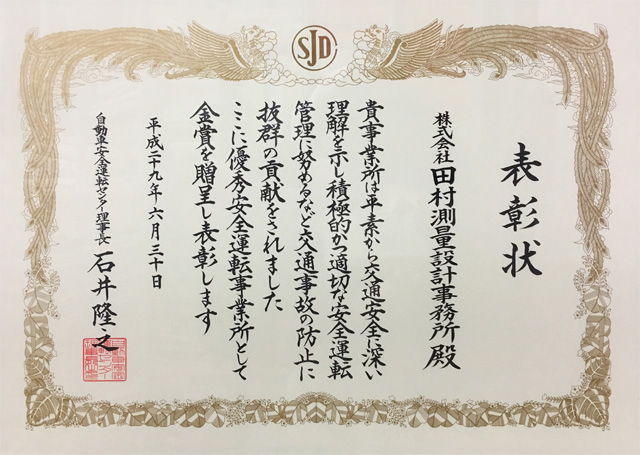 SJD
表彰状
株式会社 田村測量設計事務所 殿
貴事業所は平素から交通安全に深い
理解を示し積極的かつ適切な安全運転
管理に努めるなど交通事故の防止に
抜群の貢献をされました
ここに優秀安全運転事業所として
金賞を贈呈し表彰します
平成二十九年六月三十日
自動車安全運転センター理事長 石井隆之